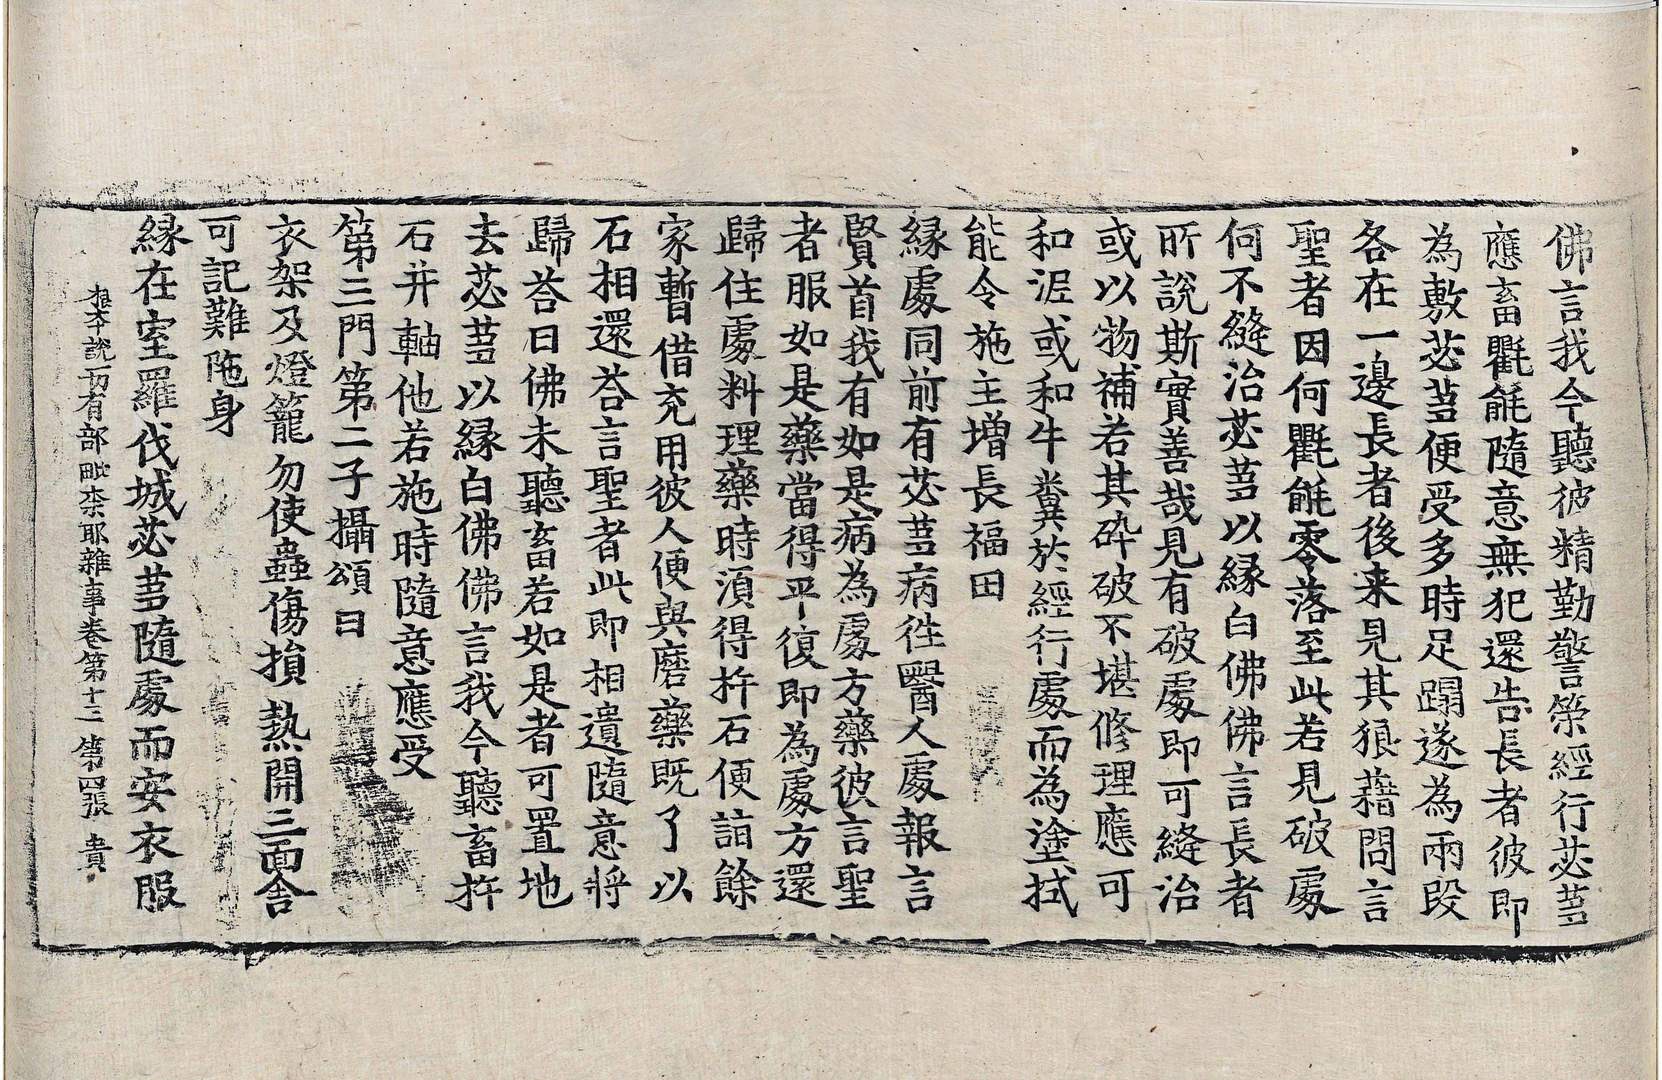 佛言我今聽彼精勤警䇿經行苾蒭
應畜氍毹隨意無犯還告長者彼即
為敷苾蒭便受多時足蹋遂為兩段
各在一邊長者後来見其狼藉問言
聖者因何氍毹零落至此若見破處
何不縫治苾蒭以縁白佛佛言長者
所說斯實善哉見有破處即可縫治
或以物補若其碎破不堪修理應可
和泥或和牛糞於經行處而為塗拭
能令施主增長福田
縁處同前有苾蒭病徃醫人處報言
賢首我有如是病為處方藥彼言聖
者服如是藥當得平復即為處方還
歸住處料理藥時須得杵石便詣餘
家暫借充用彼人便與磨藥既了以
石相還荅言聖者此即相遺隨意將
歸荅曰佛未聽畜若如是者可置地
去苾蒭以縁白佛佛言我今聽畜杵
石并軸他若施時隨意應受
第三門第二子攝頌曰
衣架及燈籠勿使蟲傷損熱開三面舍
可記難陁身
縁在室羅伐城苾蒭隨處而安衣服
根本說一切有部毗柰耶雜事卷第十三 第四張 貴